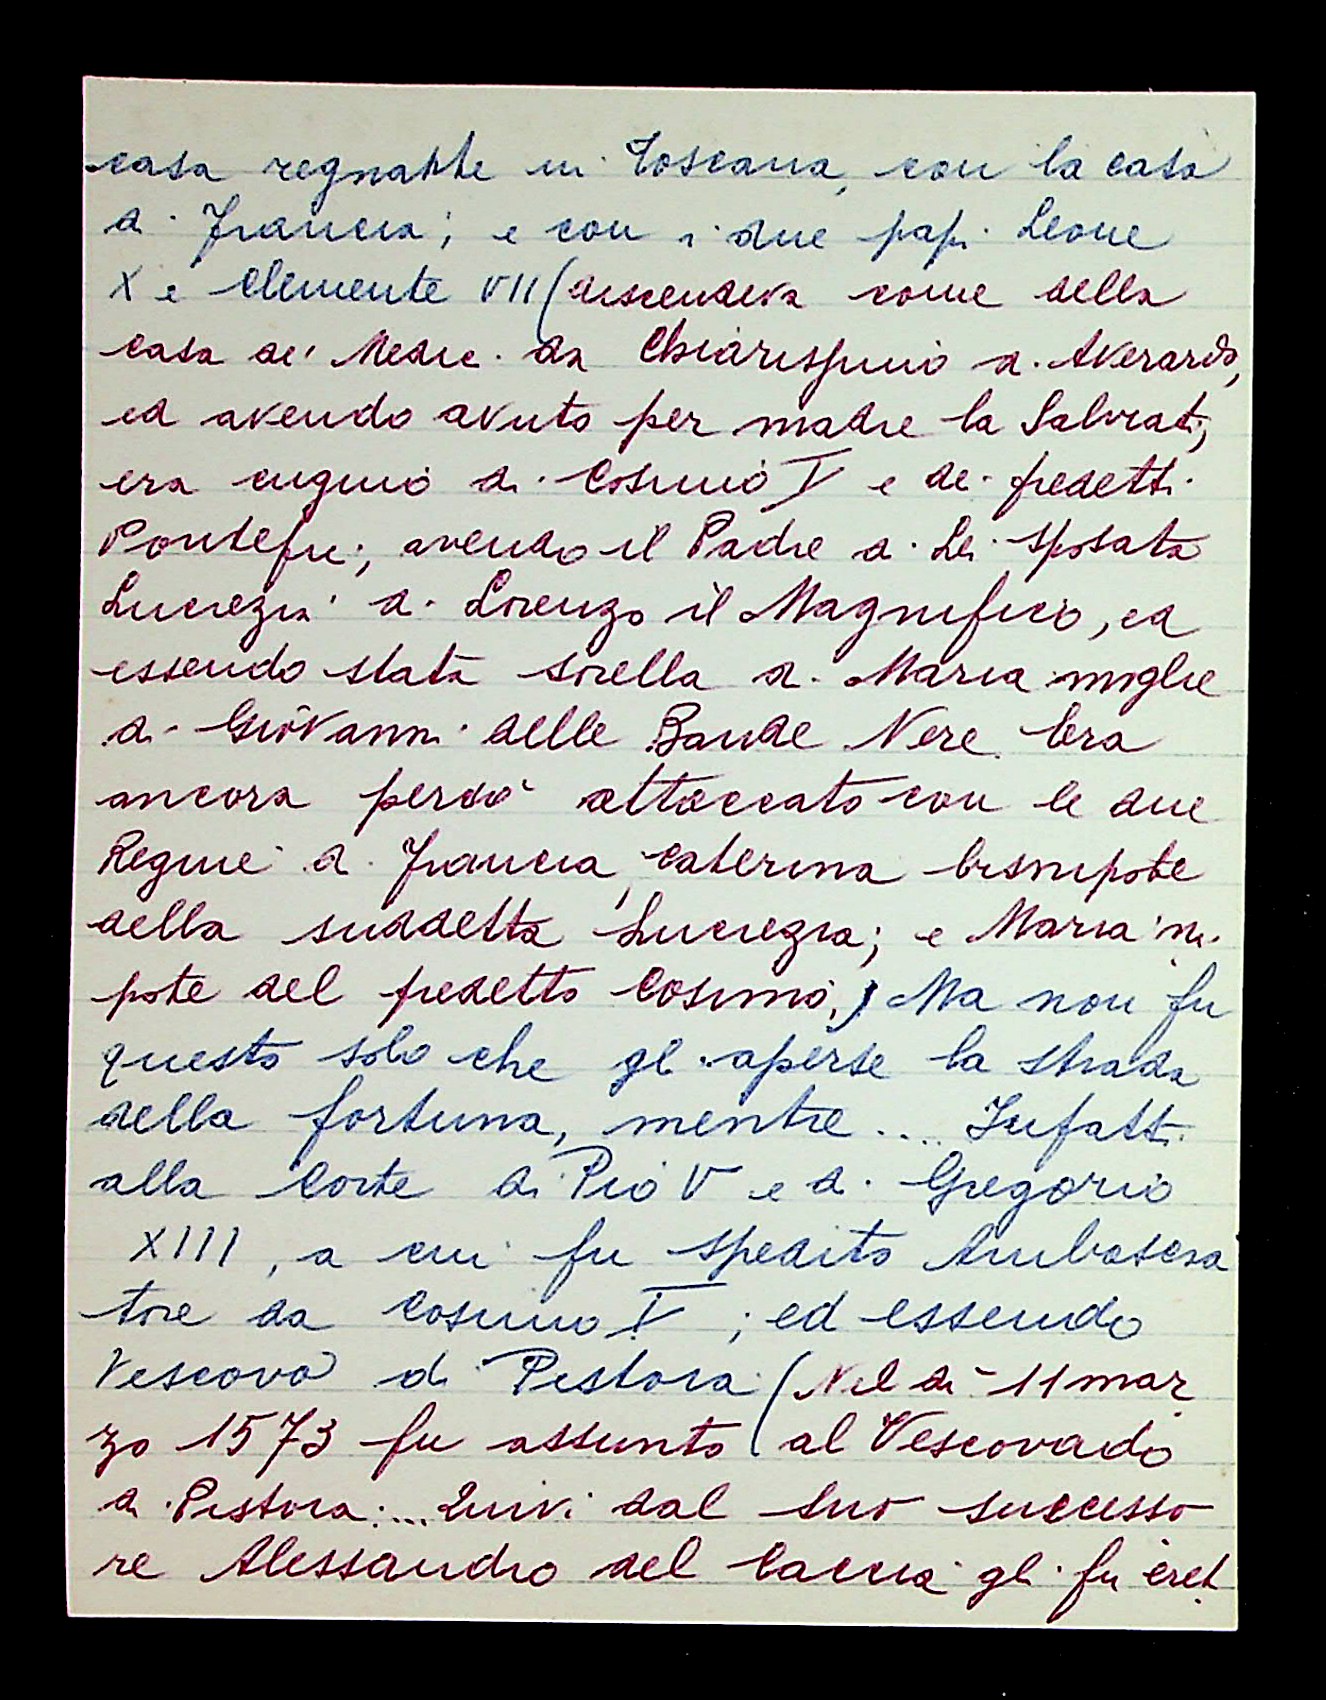 casa regnante in Toscana, con la casa
di Francia; e con i due papi Leone
X e Clemente VII (discendeva come della
casa de' Medici da Chiarissimo di Averardo,
ed avendo avuto per madre la Salviati,
era cugino di Cosimo I e de' predetti
Pontefici; avendo il Padre di Lei sposata
Lucrezia di Lorenzo il Magnifico, ed
essendo stata sorella di Maria moglie
di Giovanni delle Bande Nere. Era
ancora perciò attaccato con le due
Regine di Francia, Caterina bisnipote
della suddetta Lucrezia; e Maria ni-
pote del predetto Cosimo.) Ma non fu
questo solo che gli aperse la strada
della fortuna, mentre.... Infatti
alla Corte di Pio V e di Gregorio
XIII, a cui fu spedito Ambascia
tore da Cosimo I; ed essendo
Vescovo di Pistoia (Nel dì 11 mar
zo 1573 fu assunto al Vescovado
di Pistoia:... Quivi dal suo successo
re Alessandro del Caccia gli fu eret